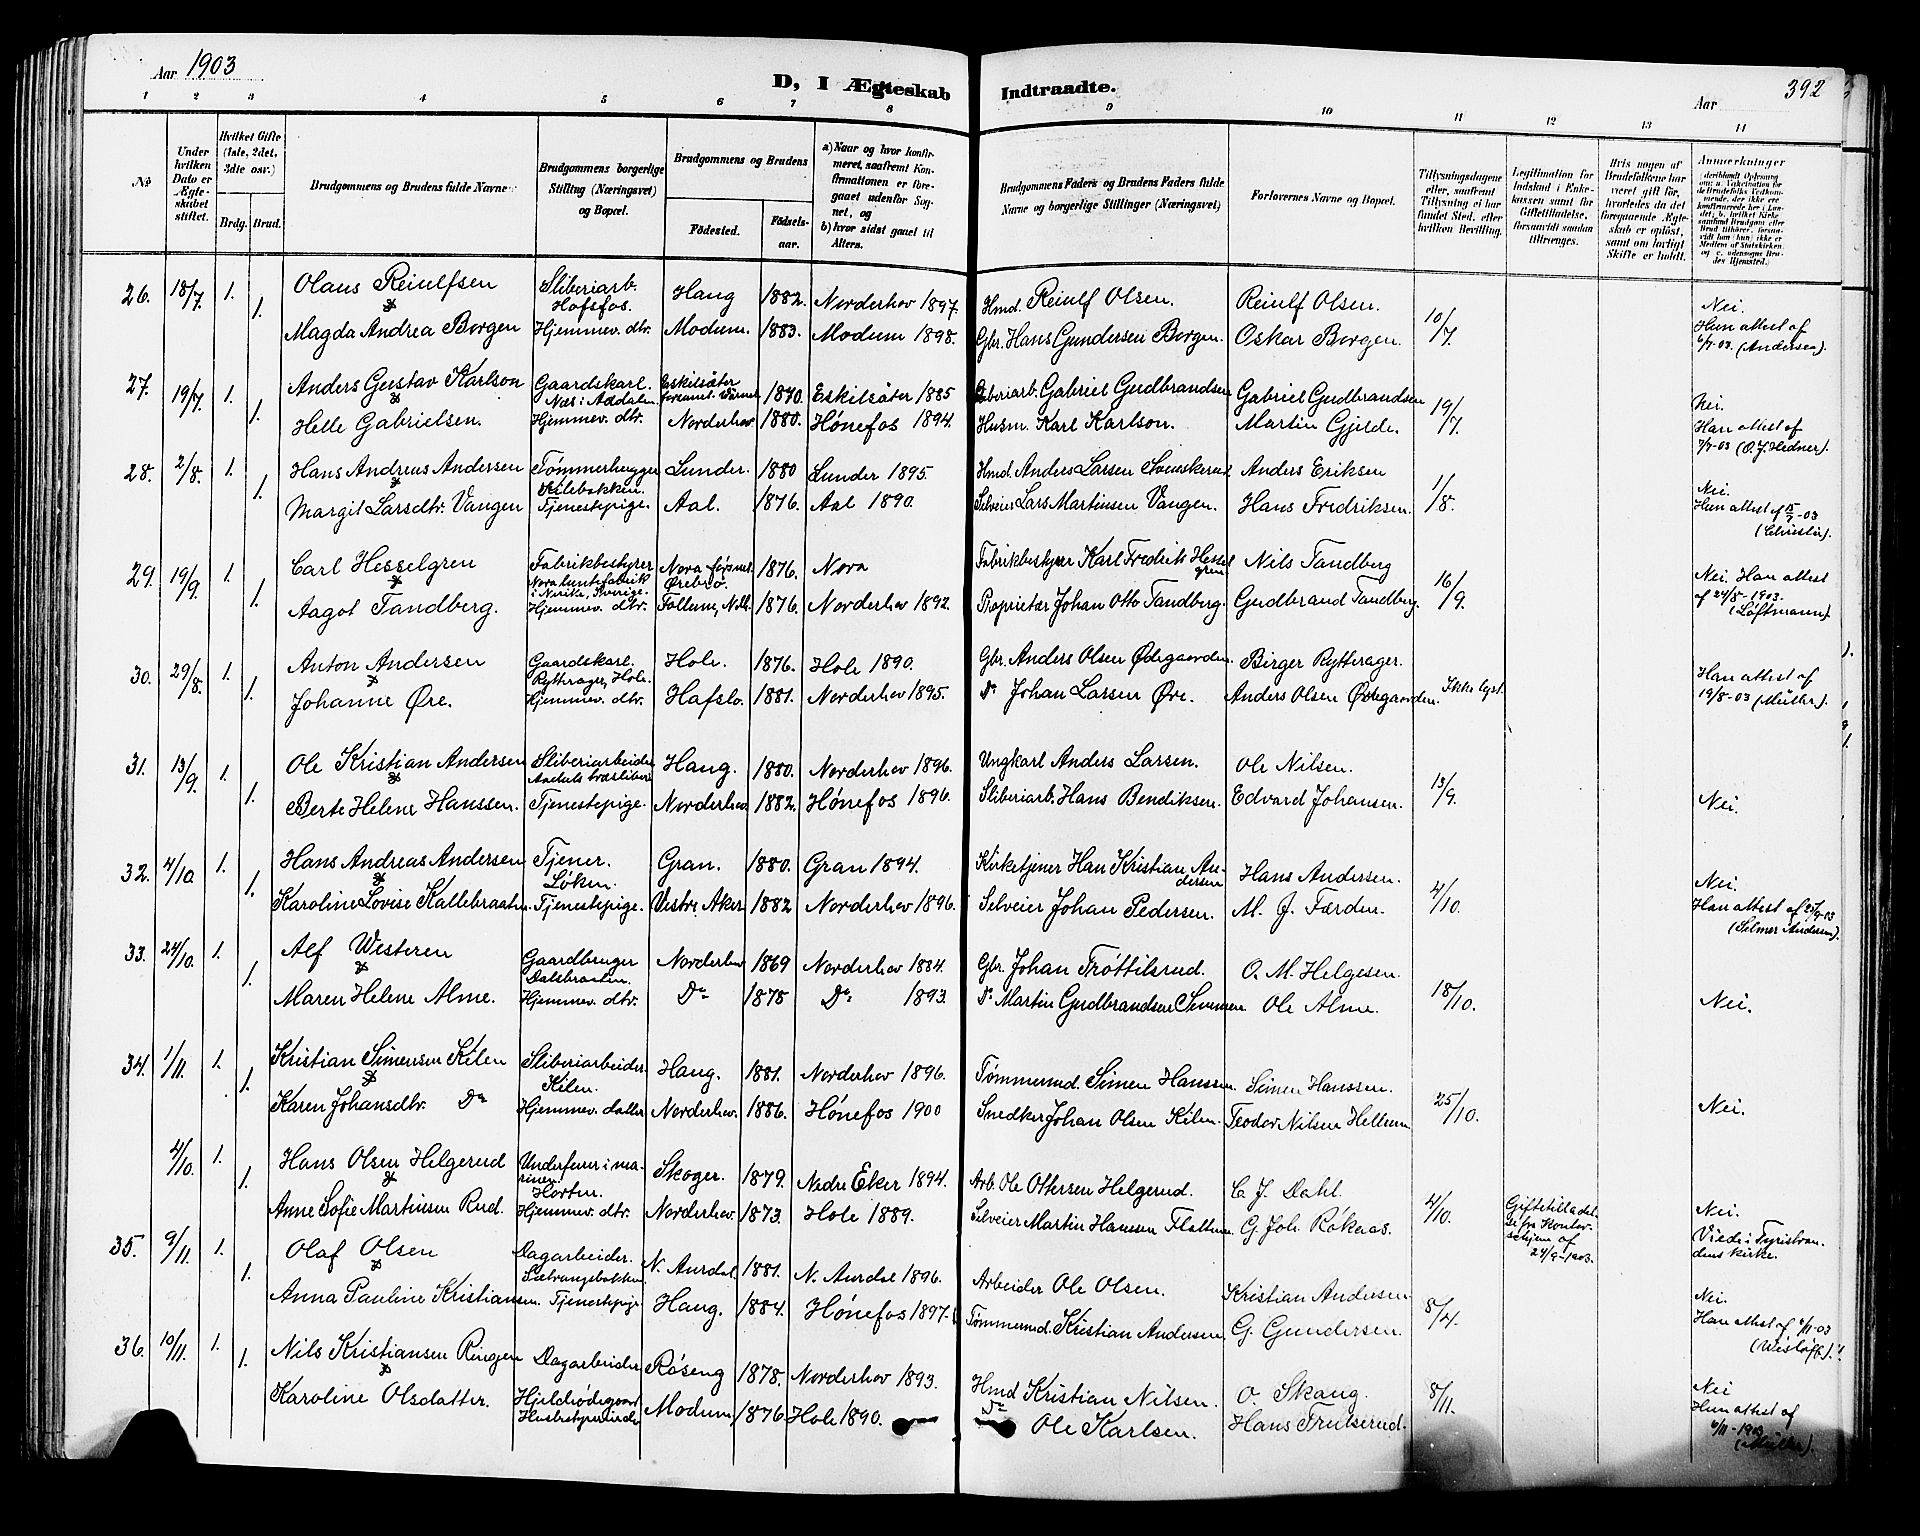 Aar 1903
D, I Ægteskab Indtraadte.
Aar 392
1 2 3 4 5 6 7 8 9 10 11 12 13 14
No
Under hvilken Dato er Ægteskabet stiftet.
Hvilket Gifte (1ste, 2det, 3die osv.)
Brdg. Brud.
Brudgommens og Brudens fulde Navne
Brudgommens borgerlige Stilling (Næringsvei) og Bopæl.
Brudgommens og Brudens
Födested. Födselsaar.
a) Naar og hvor konfirmeret, saafremt Konfirmationen er foregaaet udenför Sognet, og
b) hvor sidst gaaet til Alters.
Brudgommens Faders og Brudens Faders fulde Navne og borgerlige Stillinger (Næringsvei)
Forlovernes Navne og Bopæl.
Tillysningsdagene eller, saafremt Tillysning ei har fundet Sted, efter hvilken Bevilling.
Legitimation for Indskud i Enkekassen samt for Giftetilladelse, forsaavidt saadan tiltrænges.
Hvis nogen af Brudefolkene har været gift för, hvorledes da det foregaaende Ægteskab er oplöst, samt om lovligt Skifte er holdt.
Anmerkninger
26. 18/7 1. Olaus Reiulfsen Sliberiarb. Hofsfos. Haug 1882. Norderhov 1897. Hmd. Reiulf Olsen. Reiulf Olsen. 10/7 Nei.
1. Magda Andrea Borgen Hjemmev. dtr. Modum. 1883. Modum 1898. Gbr. Hans Gundersen Borgen. Oskar Borgen. Hun attest af 6/7-03. (Andersen)
27. 19/7 1. Anders Gustav Karlson Gaardskarl. Næs i Aadalen Eskilsäter 1870. Eskilsäter 1885 Sliberiarb. Gabriel Gudbrandsen Gabriel Gudbrandsen 19/7. Nei.
1. Helle Gabrielsen. Hjemmev. dtr. Norderhov 1880. Hønefos 1894. Husm. Karl Karlson. Martin Gjelde. Han attest af 7/7-03 (O. J. Hedner).
28. 2/8. 1. Hans Andreas Andersen Tømmerhugger Kilebakken. Lunder. 1880 Lunder 1895. Hmd. Anders Larsen Anders Eriksen 1/8. Nei.
1. Margit Larsdtr. Vangen Tjenestepige. Aal. 1876. Aal 1890. Selveier Lars Martinsen Vangen. Hans Fredriksen. Hun attest af 15/7-03 (Christie).
29. 19/9. 1. Carl Hesselgren Fabrikbestyrer Nora i Nerike, Sverige. Nora församl. Örebro 1876. Nora Fabrikbestyrer Karl Fredrik Hesselgren Nils Tandberg 16/9. Nei. Han attest af 24/8-1903.
1. Aagot Tandberg. Hjemmev. dtr. Follum, Ndh. 1876. Norderhov 1892. Proprietær Johan Otto Tandberg. Gudbrand Tandberg. (Löftmann).
30. 29/8. 1. Anton Andersen Gaardskarl. Rytterager, Hole. Hole. 1876. Hole 1890. Gbr. Anders Olsen Ødegaarden. Birger Rytterager. Ikke lyst. Han attest af
1. Johanne Øre. Hjemmev. dtr. Hafslo. 1881. Norderhov 1895. Do Johan Larsen Øre. Anders Olsen Ødegaarden. 19/8-03 (Müller).
31. 13/9. 1. Ole Kristian Andersen Sliberiarbeider Haug. 1880. Norderhov 1896. Ungkarl Anders Larsen. Ole Nilsen. 13/9.
1. Berte Helene Hanssen. Tjenestepige. Norderhov 1882. Hønefos 1896. Sliberiarb. Hans Bendiksen. Edvard Johansen. Nei.
32. 4/10. 1. Hans Andreas Andersen Tjener. Løken. Gran. 1880. Gran 1894. Kirketjener Han Kristian Andersen Hans Andersen. 4/10. Nei.
1. Karoline Lovise Kallebraaten Tjenestepige. Vestre Aker 1882 Norderhov 1896. Selveier Johan Pedersen. M. J. Færden. Han attest af 25/9-03 (Selmer Andersen).
33. 24/10. 1. Alf Westeren Gaardbruger Dalsbraaten. Norderhov 1869 Norderhov 1884. Gbr. Johan Trøttilsrud. O. M. Helgesen. 18/10.
1. Maren Helene Alme. Hjemmev. dtr. Do 1878 Do 1893. Do Martin Gudbrandsen Simensen. Ole Alme. Nei.
34. 1/11. 1. Kristian Simensen Kilen Sliberiarbeider. Kilen. Haug. 1881. Norderhov 1896. Tømmermd. Simen Hanssen. Simen Hanssen. 25/10.
1. Karen Johansdtr. Do Hjemmev. datter Norderhov. 1886. Hønefos 1900 Snedker Johan Olsen Kilen. Teodor Nilsen Hellum Nei.
4/10. 1. Hans Olsen Helgerud Underfeurer i marinen Horten. Skoger. 1879. Nedre Eker 1894. Arb. Ole Ottersen Helgerud. C. J. Dahl. 4/10. Giftetilladelse fra Kontorschjem af 24/9-1903. Nei.
1. Anne Sofie Martinsen Rud. Hjemmev. dtr. Norderhov. 1873. Hole 1889. Selveier Martin Hansen Flattum. G. Joh. Røkaas. Viede i Tyristrandens kirke.
35. 9/11. 1. Olaf Olsen Dagarbeider. Sætrangsbakken N. Aurdal. 1881. N. Aurdal 1896. Arbeider Ole Olsen. Kristian Andersen 8/4. Nei.
1. Anna Pauline Kristiansen. Tjenestepige. Haug. 1884. Hønefos 1897. Tømmermd. Kristian Andersen. G. Gundersen. Han attest af 4/11-03 (Wisløff).
36. 10/11. 1. Nils Kristiansen Ringen Dagarbeider Røseng 1878. Norderhov 1893. Hmd Kristian Nilsen. O. Skaug. 8/11. Nei
1. Karoline Olsdatter. Modum, 1876. Hole 1890. Do Ole Karlsen. Hans Trulserud. Hun attest af 6/11-1903 (Müller).